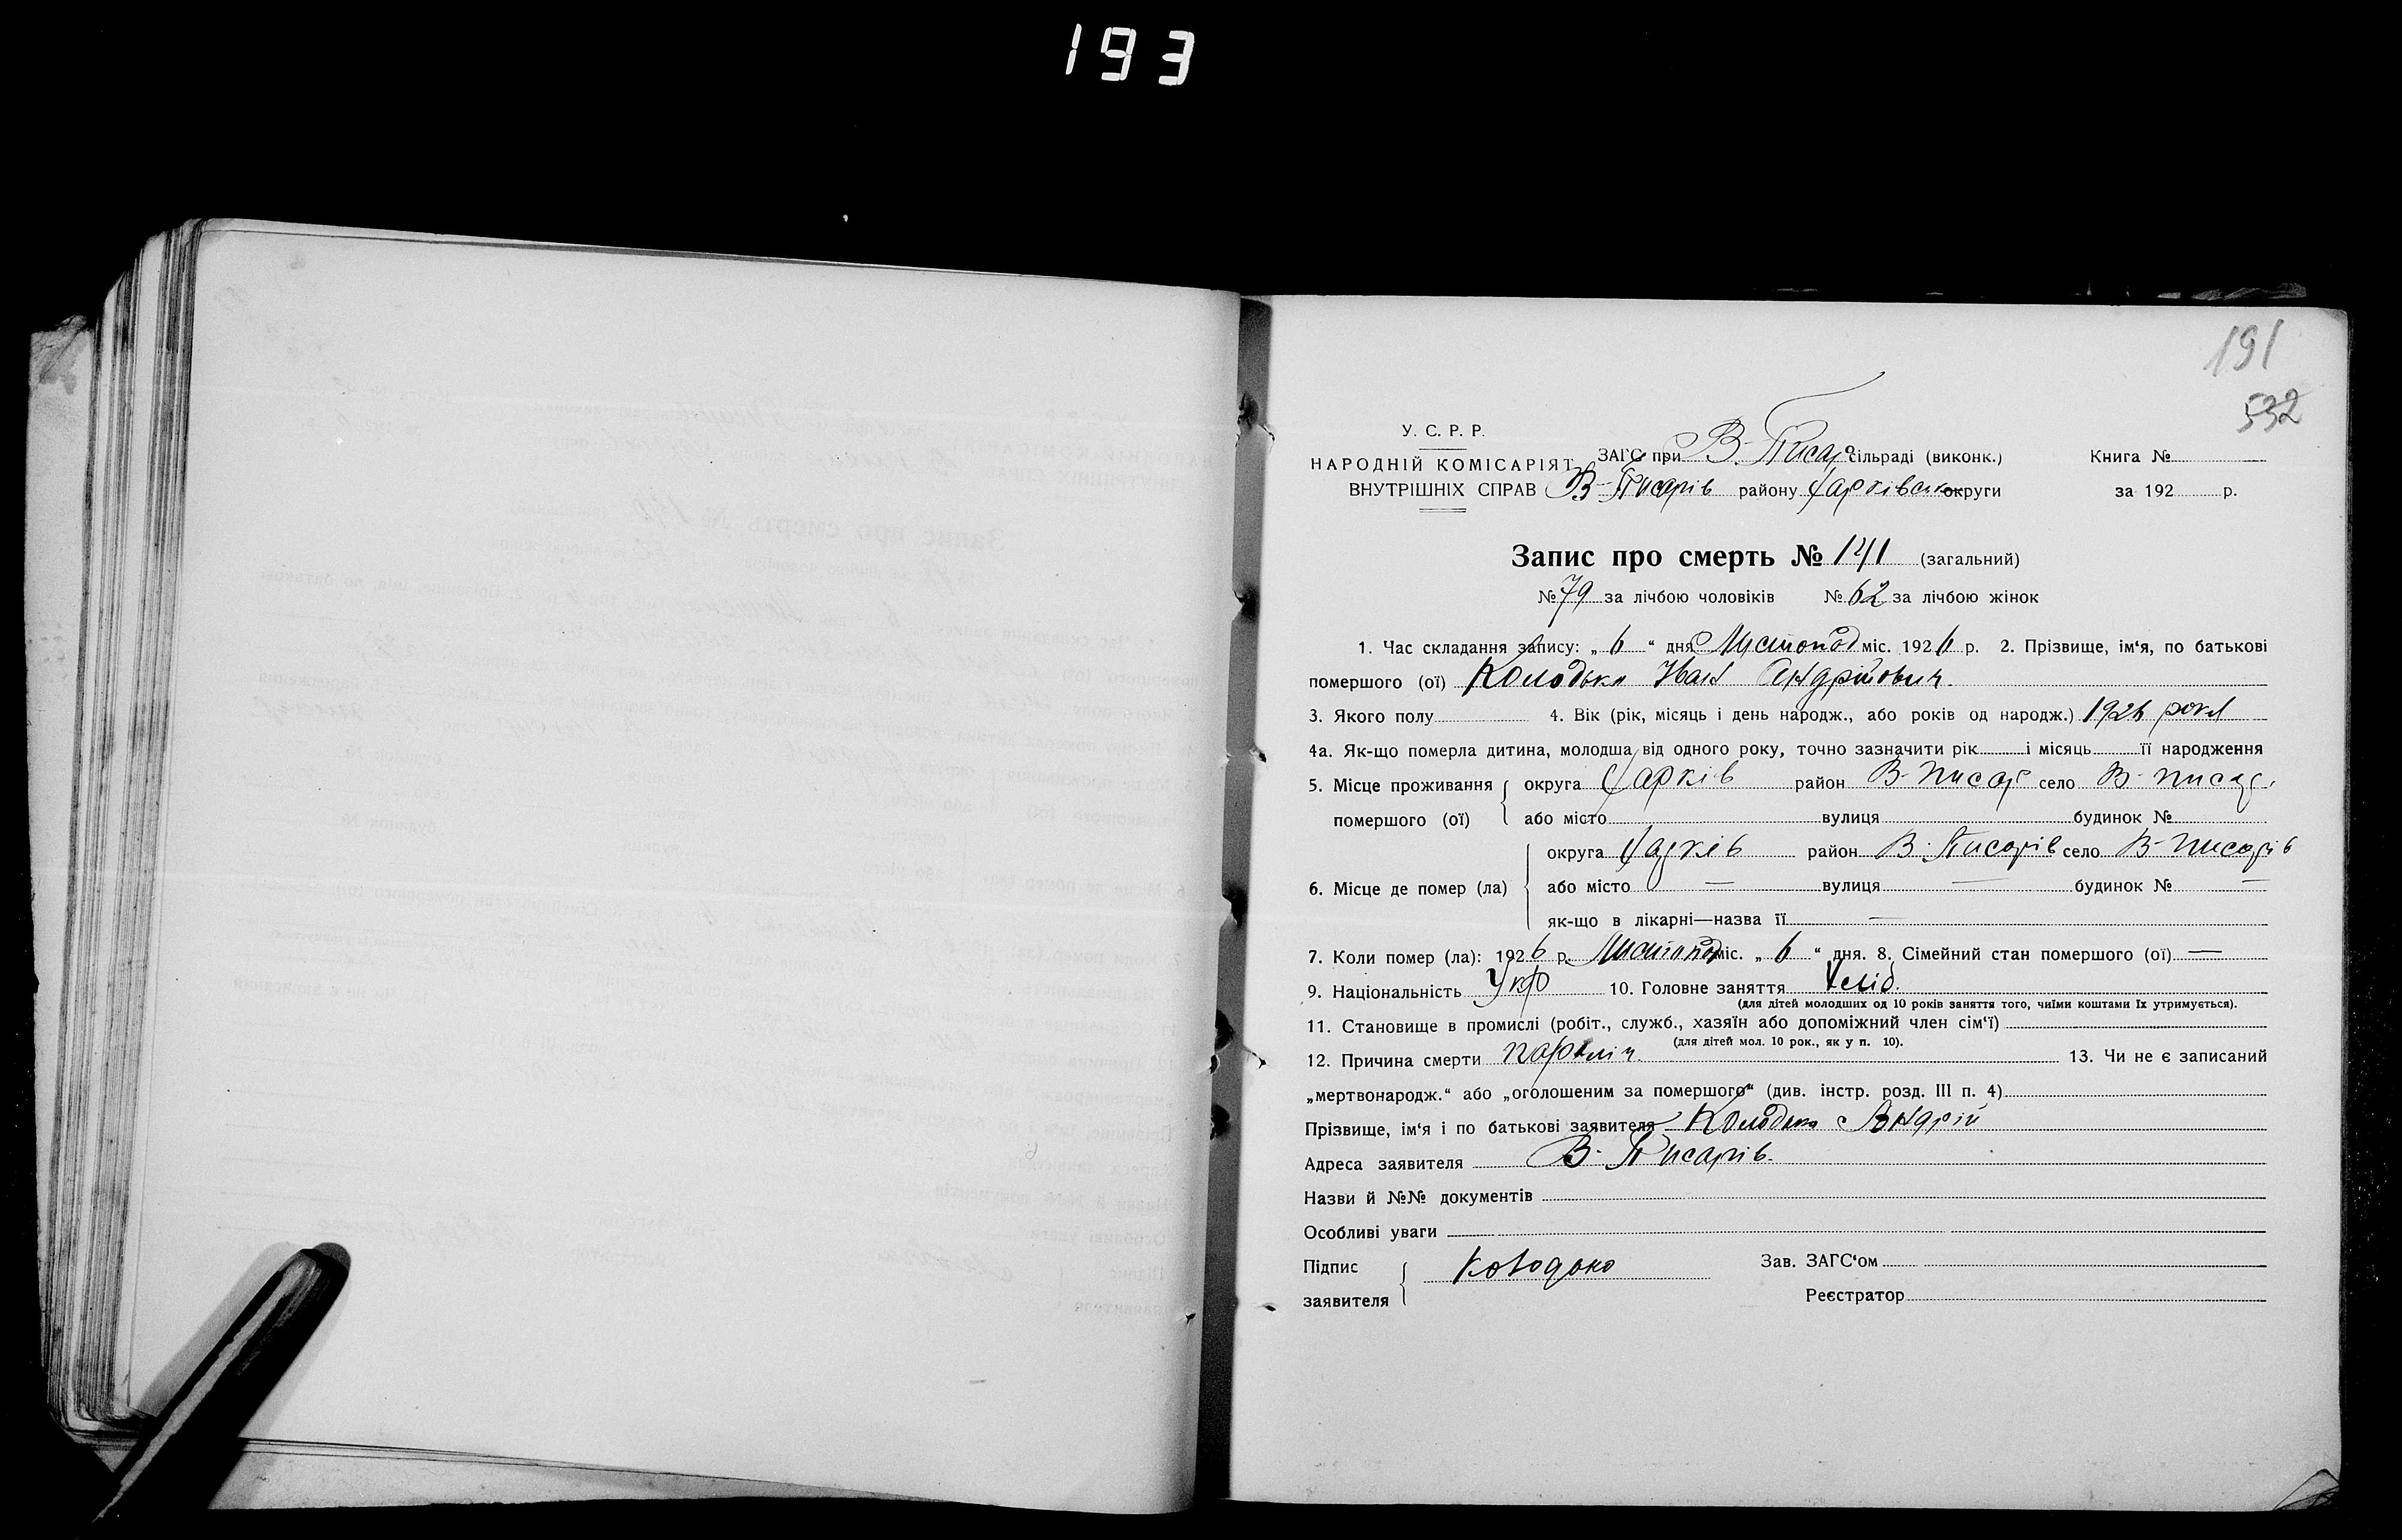 193
191
532
У. С. Р. Р.
НАРОДНІЙ КОМІСАРІЯТ
ВНУТРІШНІХ СПРАВ
ЗАГС при В-Писар сільраді (виконк.)
В-Писарів району Харківськ округи
Книга №
за 192 р.
Запис про смерть № 141 (загальний)
№ 79 за лічбою чоловіків № 62 за лічбою жінок
1. Час складання запису: „ 6 “ дня Листопод міс. 1926 р. 2. Прізвище, ім‘я, по батькові
помершого (ої) Колодько Иван Андрійович
3. Якого полу 4. Вік (рік, місяць і день народж., або років од народж.)
4а. Як-що померла дитина, молодша від одного року, точно зазначити рік і місяць її народження
5. Місце проживання помершого (ої) округа Харків район В-Писар село В-писар
або місто вулиця будинок №
6. Місце де помер (ла) округа Харків район В-Писарів село В-Писарів
або місто — вулиця — будинок № —
як-що в лікарні—назва її —
7. Коли помер (ла): 1926 р. Листопод міс. „ 6 “ дня. 8. Сімейний стан помершого (ої) —
9. Національність Укр 10. Головне заняття Хліб.
(для дітей молодших од 10 років заняття того, чиїми коштами їх утримується).
11. Становище в промислі (робіт., служб., хазяїн або допоміжний член сім‘ї)
(для дітей мол. 10 рок., як у п. 10).
12. Причина смерти параліч. 13. Чи не є записаний
„мертвонародж.“ або „оголошеним за помершого“ (див. інстр. розд. III п. 4)
Прізвище, ім‘я і по батькові заявителя Колодько Андрій
Адреса заявителя В-Писарів.
Назви й №№ документів
Особливі уваги
Підпис заявителя Колодько Зав. ЗАГС‘ом
Реєстратор